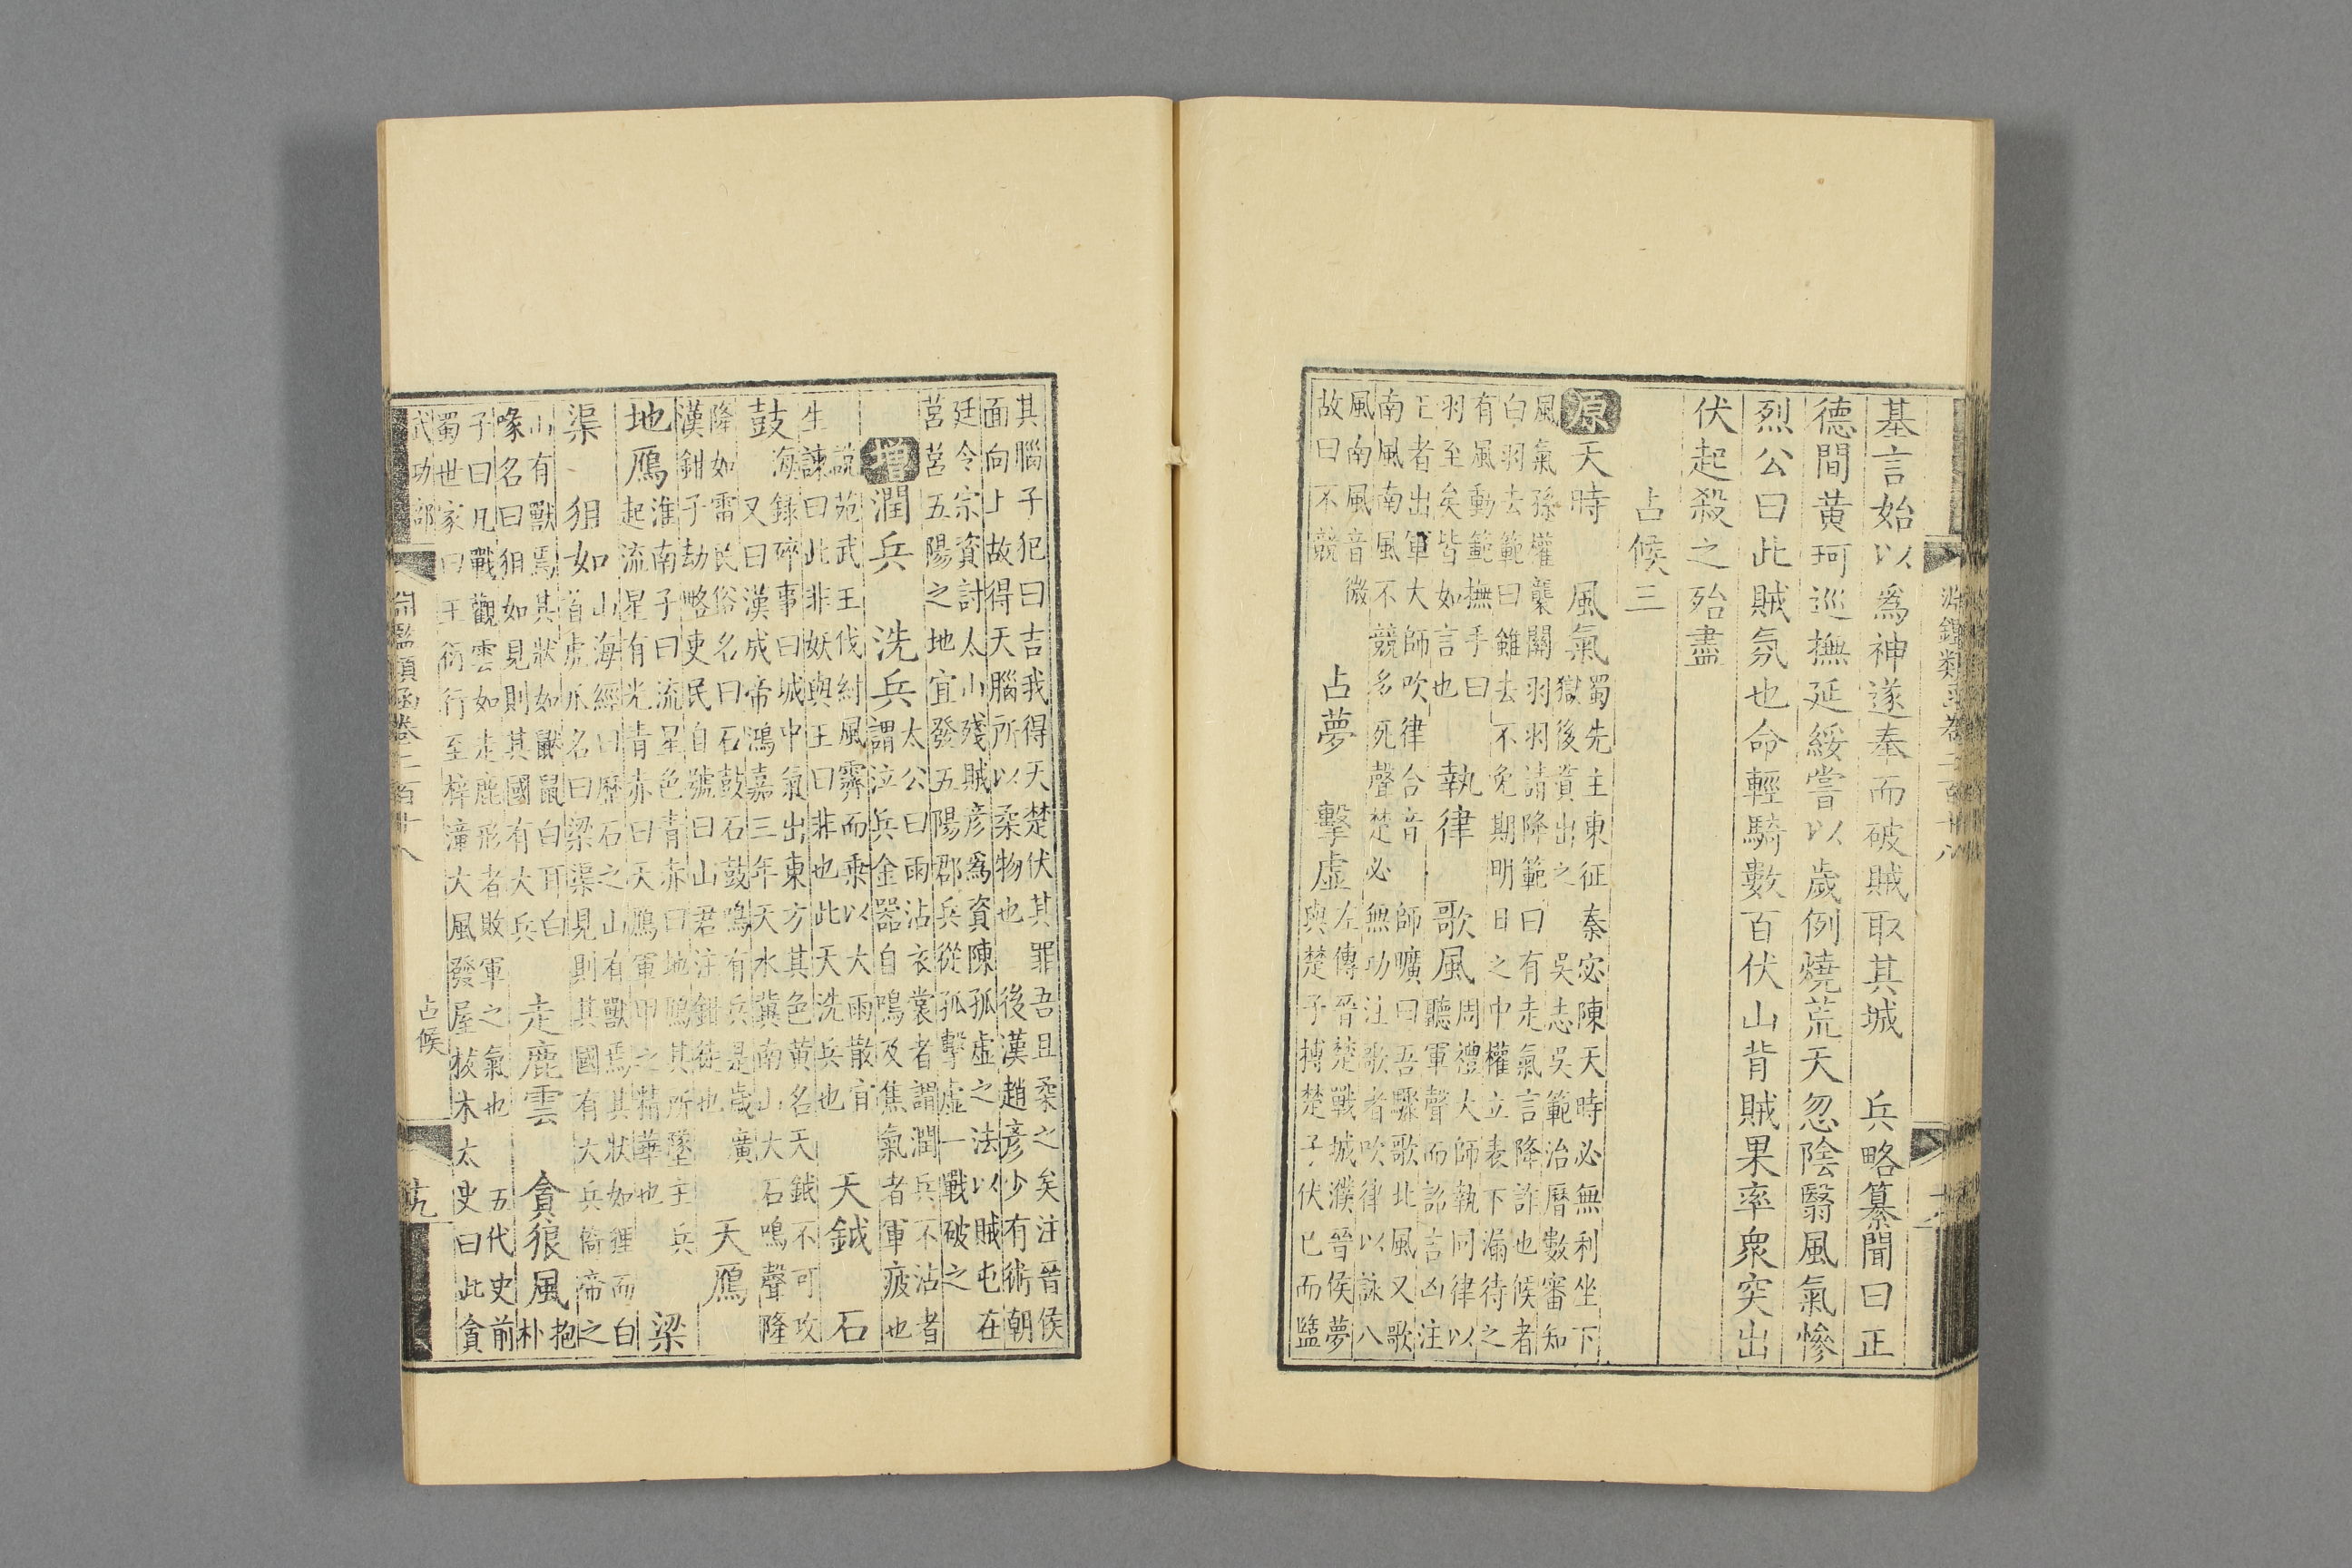 淵鑑類函卷二百十八
基言始以爲神遂奉而破賊取其城　兵略纂聞曰正
德間黃珂巡撫延綏嘗以歲例燒荒天忽陰翳風氣慘
烈公曰此賊氛也命輕騎數百伏山背賊果率衆突出
伏起殺之殆盡
占候三
原天時　風氣
蜀先主東征秦宓陳天時必無利坐下
獄後貸出之　吳志吳範治曆數審知
風氣孫權襲關羽羽請降範曰有走氣言降詐也候者
白羽去範曰雖去不免期明日之中權立表下漏待之
有風動範撫手曰
羽至矣皆如言也
執律　歌風
周禮大師執同律以
聽軍聲而詔言凶注
王者出軍大師吹律合音　師曠曰吾驟歌北風又歌
南風南風不競多死聲楚必無功注歌者吹律以詠八
風南風音微
故曰不競
占夢　擊虛
左傳晉楚戰城濮晉侯夢
與楚子搏楚子伏已而盬
其腦子犯曰吉我得天楚伏其罪吾且柔之矣注晉侯
面向上故得天腦所以柔物也　後漢趙彥少有術朝
廷令宗資討太山殘賊彥爲資陳孤虛之法以賊屯在
莒莒五陽之地宜發五陽郡兵從孤擊虛一戰破之
增潤兵　洗兵
太公曰雨沾衣裳者謂潤兵不沾者
謂泣兵金器自鳴及焦氣者軍疲也
說苑武王伐紂風霽而乘以大雨散宜
生諫曰此非妖與王曰非也此天洗兵也
天鉞　石
鼓
海錄碎事曰城中氣出東方其色黃名天鉞不可攻
又曰漢成帝鴻嘉三年天水冀南山大石鳴聲隆
隆如雷民俗名曰石鼓石鼓鳴有兵是歲廣
漢鉗子劫略吏民自號曰山君注鉗徒也
天鴈
地鴈
淮南子曰流星色青赤曰地鴈其所墜主兵
起流星有光青赤曰天鴈軍甲之精華也
梁
渠　狙如
山海經曰歷石之山有獸焉其狀如狸而白
首虎爪名曰梁渠見則其國有大兵倚帝之
山有獸焉其狀如鼣鼠白耳白
喙名曰狙如見則其國有大兵
走鹿雲　貪狼風
抱
朴
子曰凡戰觀雲如走鹿形者敗軍之氣也　五代史前
蜀世家曰王衍行至梓潼大風發屋拔木太史曰此貪
武功部
淵鑑類函卷二百十八
占候
十九